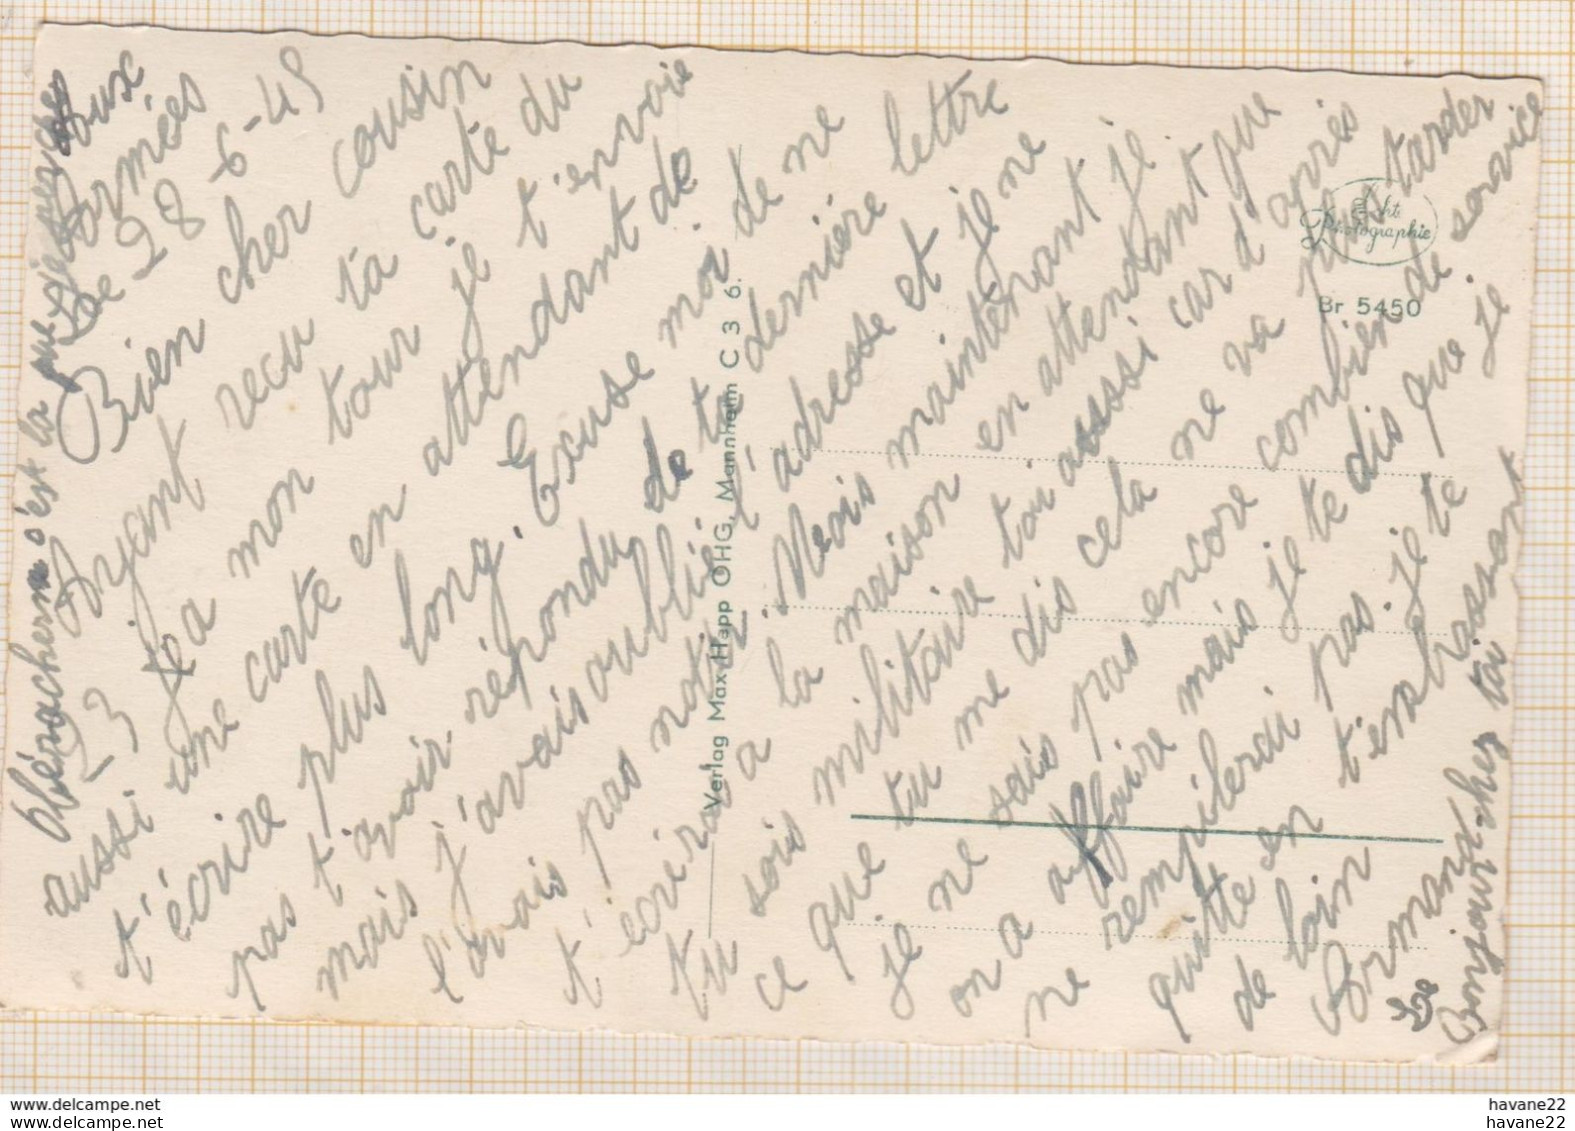 Aux
Armées
Le 28-6-49
Bien cher cousin
Ayant reçu ta carte du
23 j'ta mon tour je t'envoie
aussi une carte en attendant de
t'écrire plus long. Excuse moi de ne
pas t'avoir répondu de ta dernière lettre
mais j'avais oublié l'adresse et je ne
l'avais pas noter. Mais maintenant je
t'écriras a la maison en attendant que
tu sois militaire toi aussi car d'après
ce que tu me dis cela ne va plus tarder
je ne sais pas encore combien de service
on a affaire mais je te dis que je
ne rempilerai pas. je te
quitte en t'embrassant
de loin
Armand
Bonjour chez toi
Obérachern s'est la que je
Verlag Max Happ OHG, Mannheim C 3 6.
Echte
Photographie
Br 5450
havane22
havane22
havane22
havane22